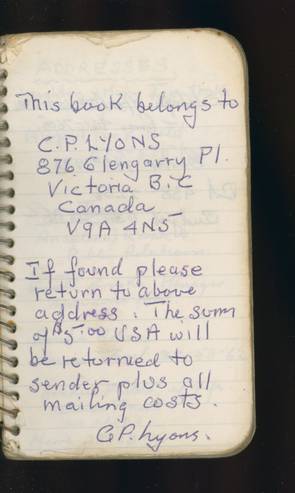 This book belongs to
C.P. LYONS
876 Glengarry Pl.
Victoria B.C
Canada
V9A 4N5
If found please
return to above
address. The sum
of $5.00 USA will
be returned to
sender plus all
mailing costs.
C.P. Lyons.